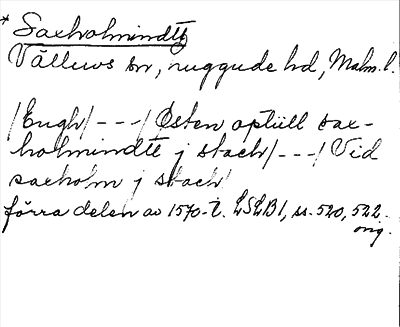 * Saxholmindtt
Välluvs sn, ruggude hd, Malm. l.
/Engh/---/ Østen optill sax-
holmindtt j stach/---/ Vid
saxholm j stach/
förra delen av 1570-t. LSLB1, ss. 520, 522.
orig.